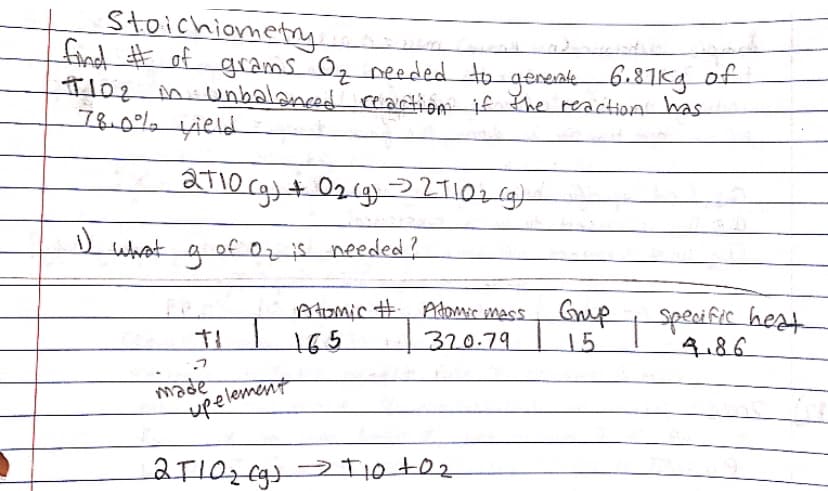 Stoichiometry
find # of grams O2 needed to generate 6.87Kg of
TlO2 in unbalanced reaction if the reaction has
78.0% yield
2TlO(g) + O2(g) → 2TlO2(g)
1) what g of O2 is needed?
Atomic # Atomic mass Group specific heat
Tl 165 320.79 15 4.86
made
up element
2TlO2(g) → TlO + O2